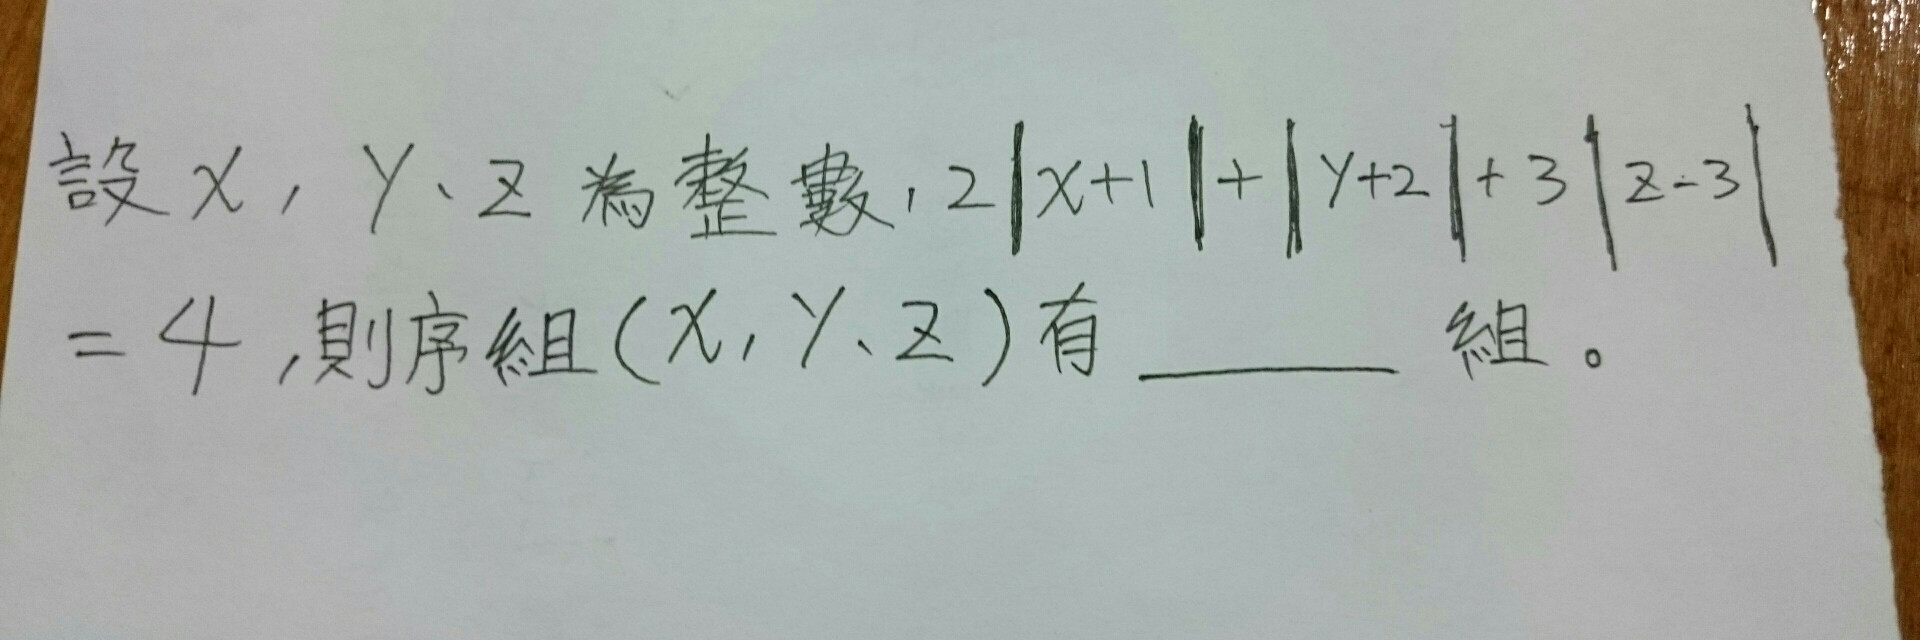 設x，y、z為整數，2|x+1|+|y+2|+3|z-3|
=4，則序組(x，y、z)有______組。